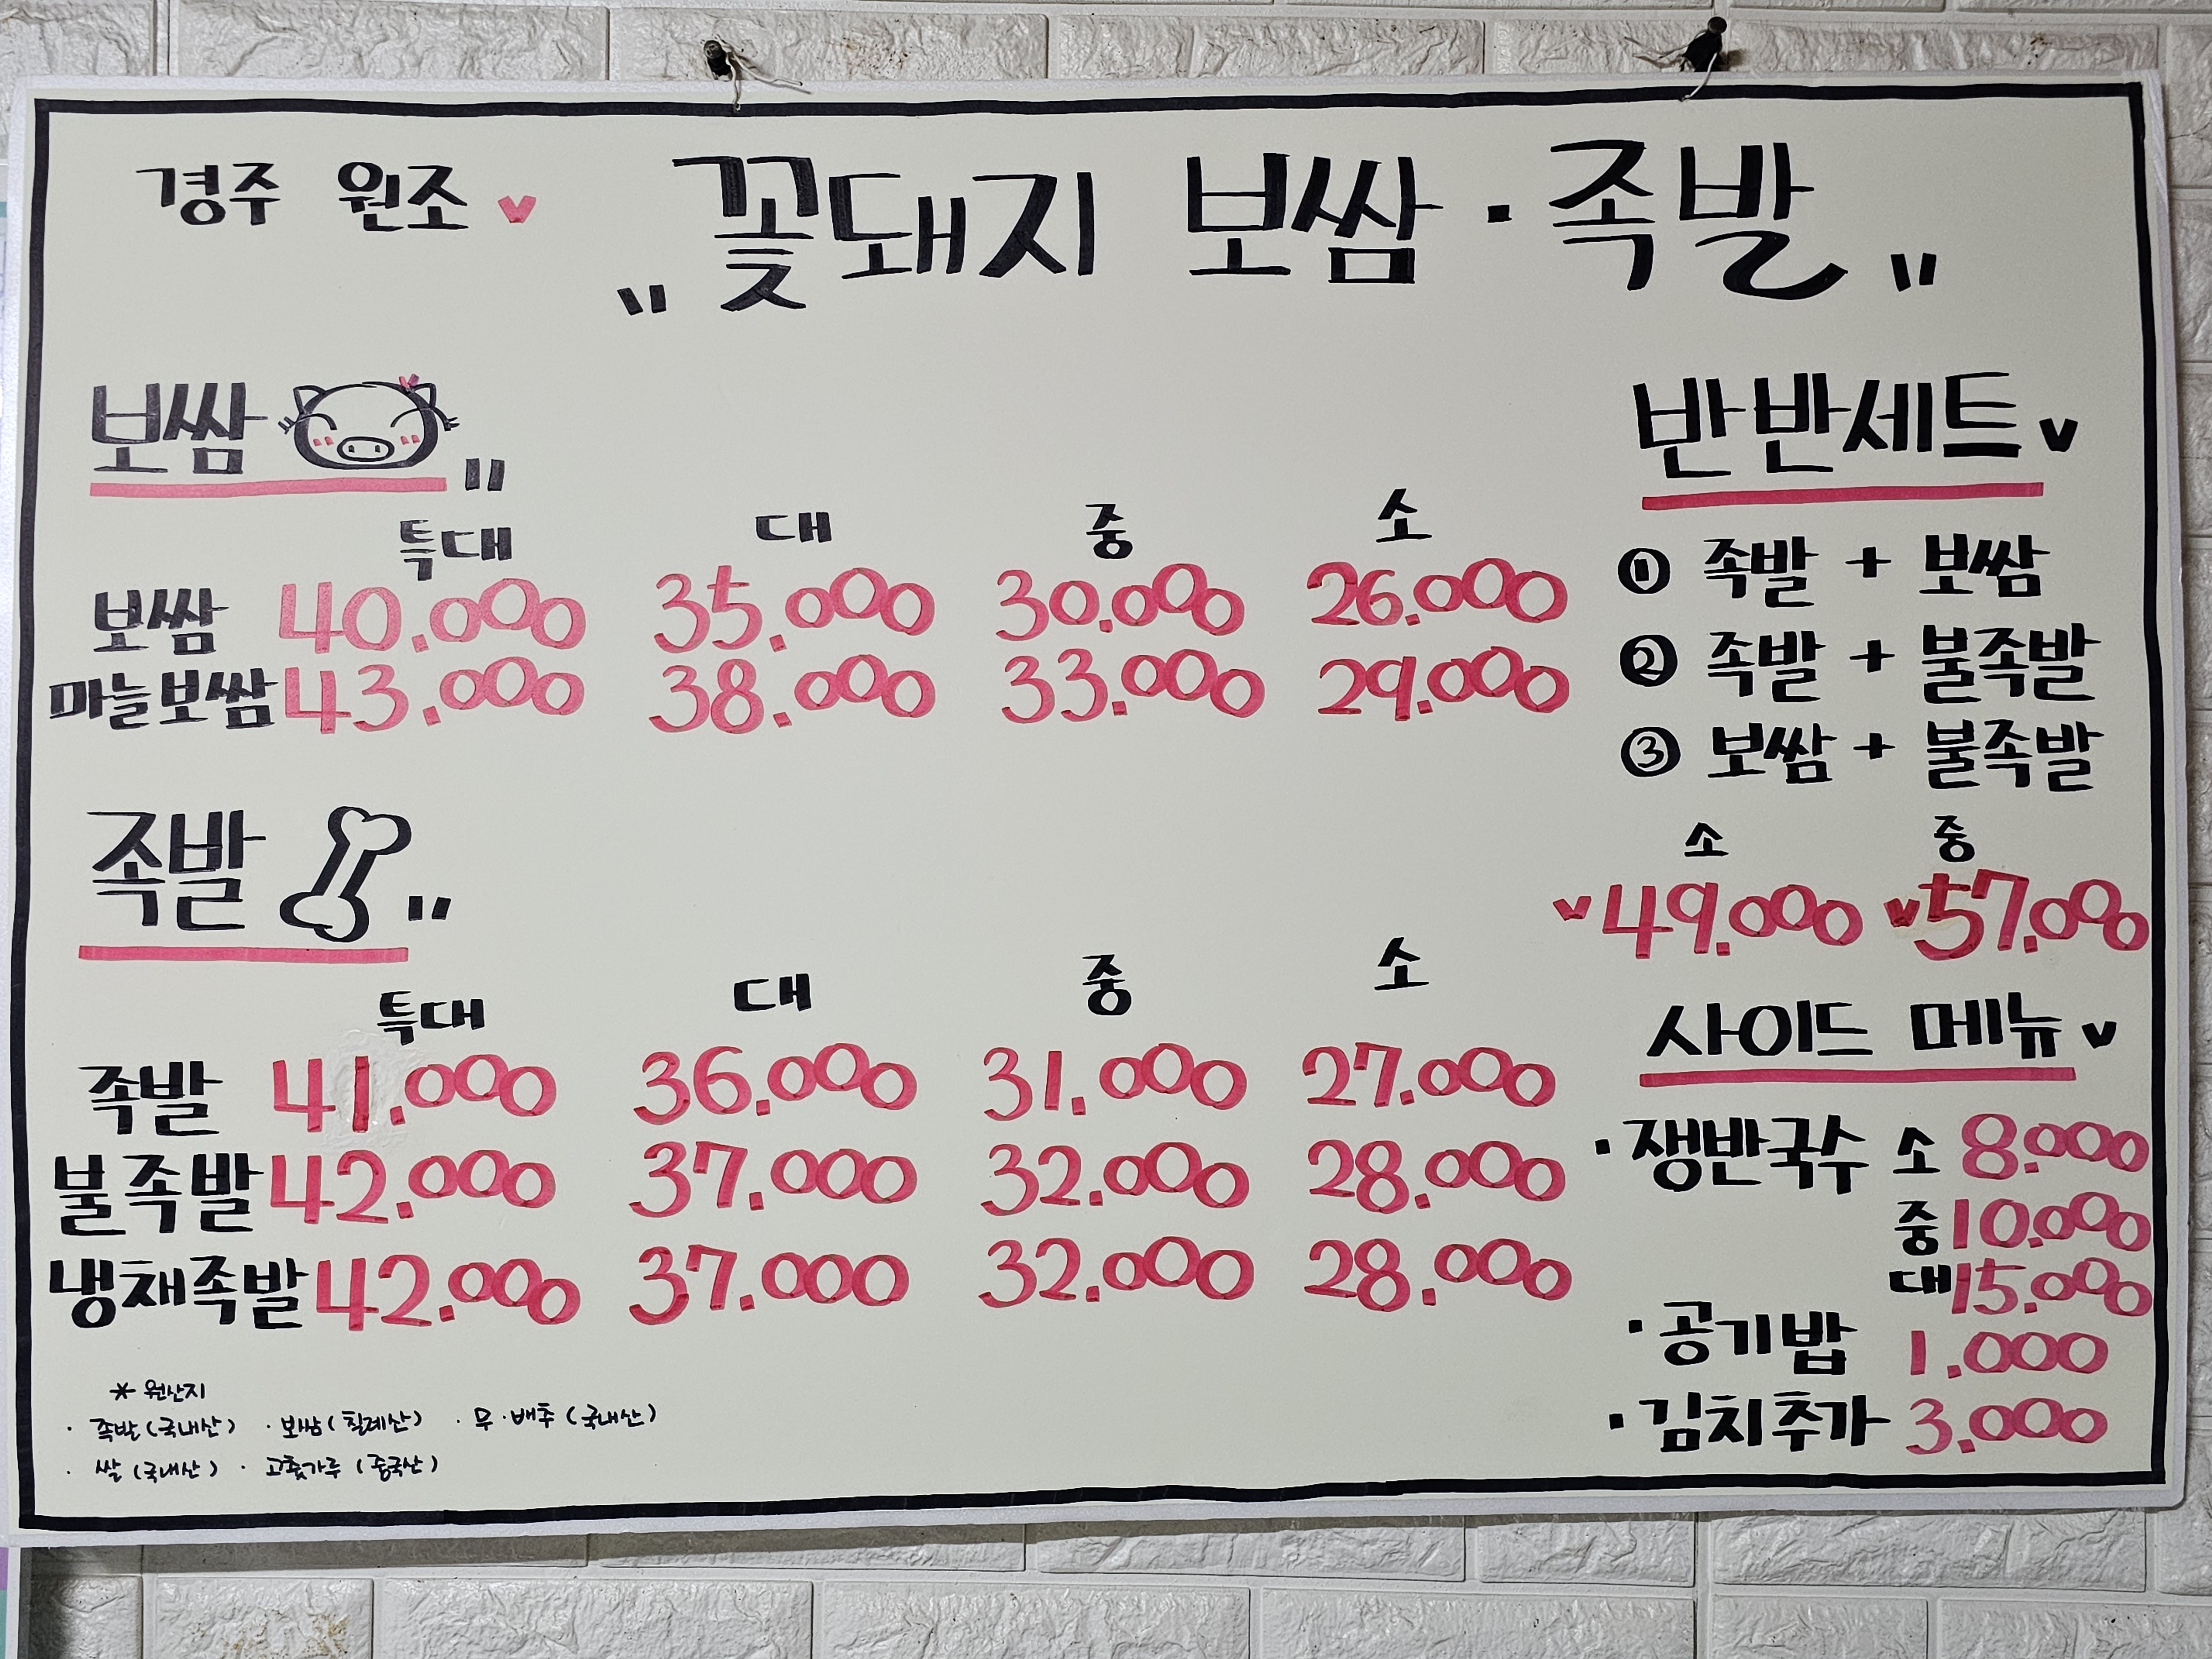 경주 원조
"꽃돼지 보쌈·족발"
보쌈"
특대 대 중 소
보쌈 40.000 35.000 30.000 26.000
마늘보쌈 43.000 38.000 33.000 29.000
족발"
특대 대 중 소
족발 41.000 36.000 31.000 27.000
불족발 42.000 37.000 32.000 28.000
냉채족발 42.000 37.000 32.000 28.000
* 원산지
· 족발(국내산) · 보쌈(칠레산) · 무·배추(국내산)
· 쌀(국내산) · 고춧가루(중국산)
반반세트
① 족발 + 보쌈
② 족발 + 불족발
③ 보쌈 + 불족발
소 중
49.000 57.000
사이드 메뉴
·쟁반국수 소 8.000
중 10.000
대 15.000
·공기밥 1.000
·김치추가 3.000